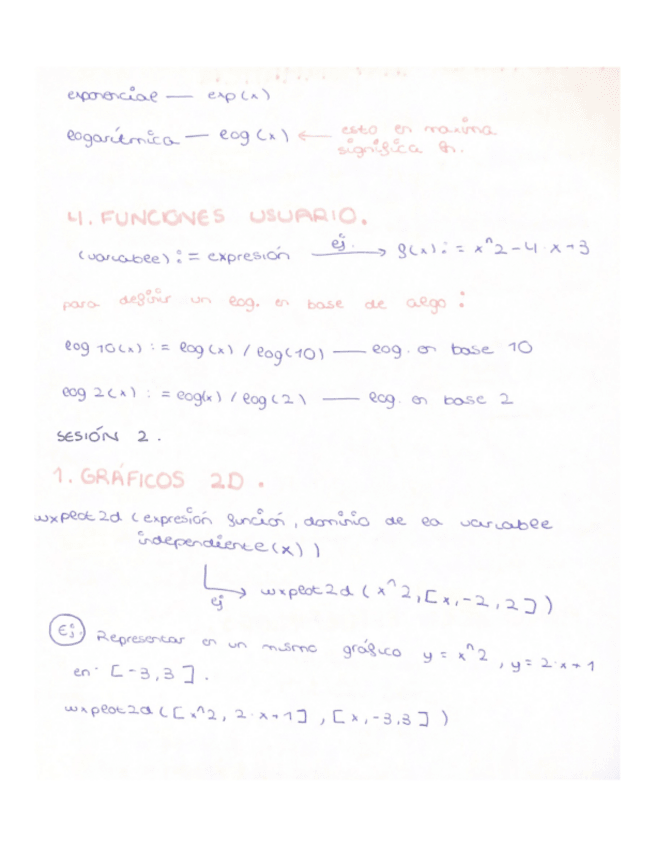 exponencial — exp(x)
logarítmica — log(x) ← esto en maxima
significa ln.
4. FUNCIONES USUARIO.
(variable) := expresión ej. → f(x) := x^2-4·x+3
para definir un log. en base de algo:
log 10(x) := log(x) / log(10) — log. en base 10
log 2(x) := log(x) / log(2) — log. en base 2
SESIÓN 2.
1. GRÁFICOS 2D.
wxplot2d (expresión función, dominio de la variable
independiente(x))
ej → wxplot2d (x^2,[x,-2,2])
Ej. Representar en un mismo gráfico y = x^2, y = 2·x+1
en [-3,3].
wxplot2d([x^2, 2·x+1], [x,-3,3])